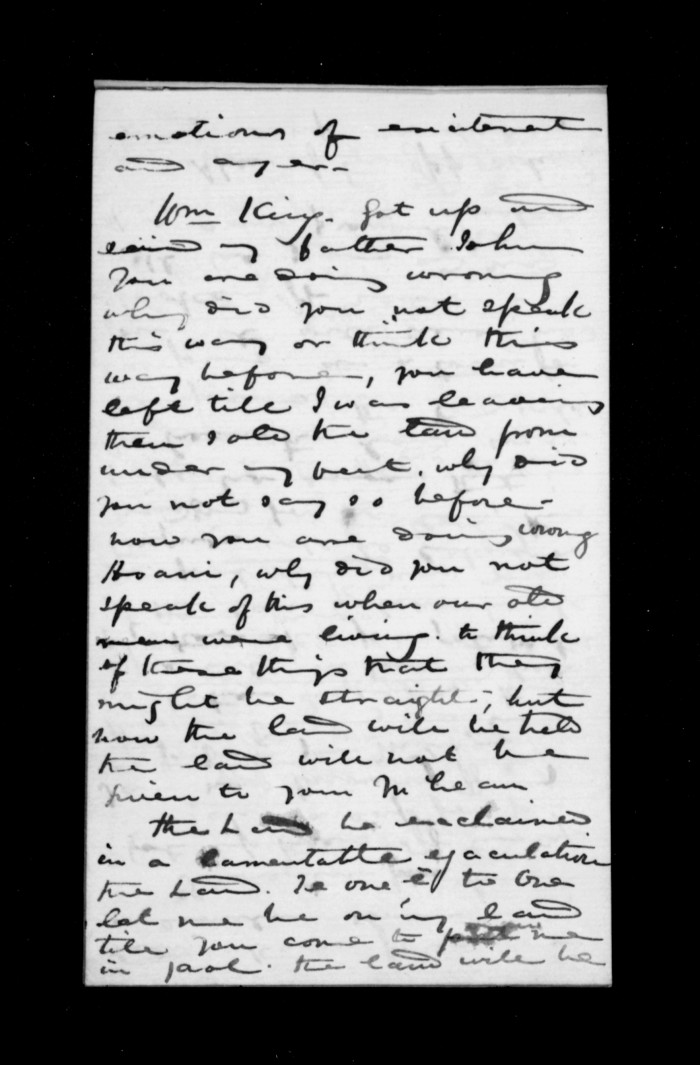 emotions of excitement
and anger -
Wm King. Got up and
said my father John
you are doing wrong
why did you not speak
this way or think this
way before, you have
left till I was leaving
then sold the land from
under my feet. why did
you not say so before -
now you are doing wrong
Hoani, why did you not
speak of this when our old
men were living. to think
of these things that they
might be straight, but
now the land will be held
the land will not be
given to you McLean
the Land he exclaimed
in a lamentable ejaculation
the Land. Te one e te one
let me be on my land
till you come to me
in jaol. the land will be